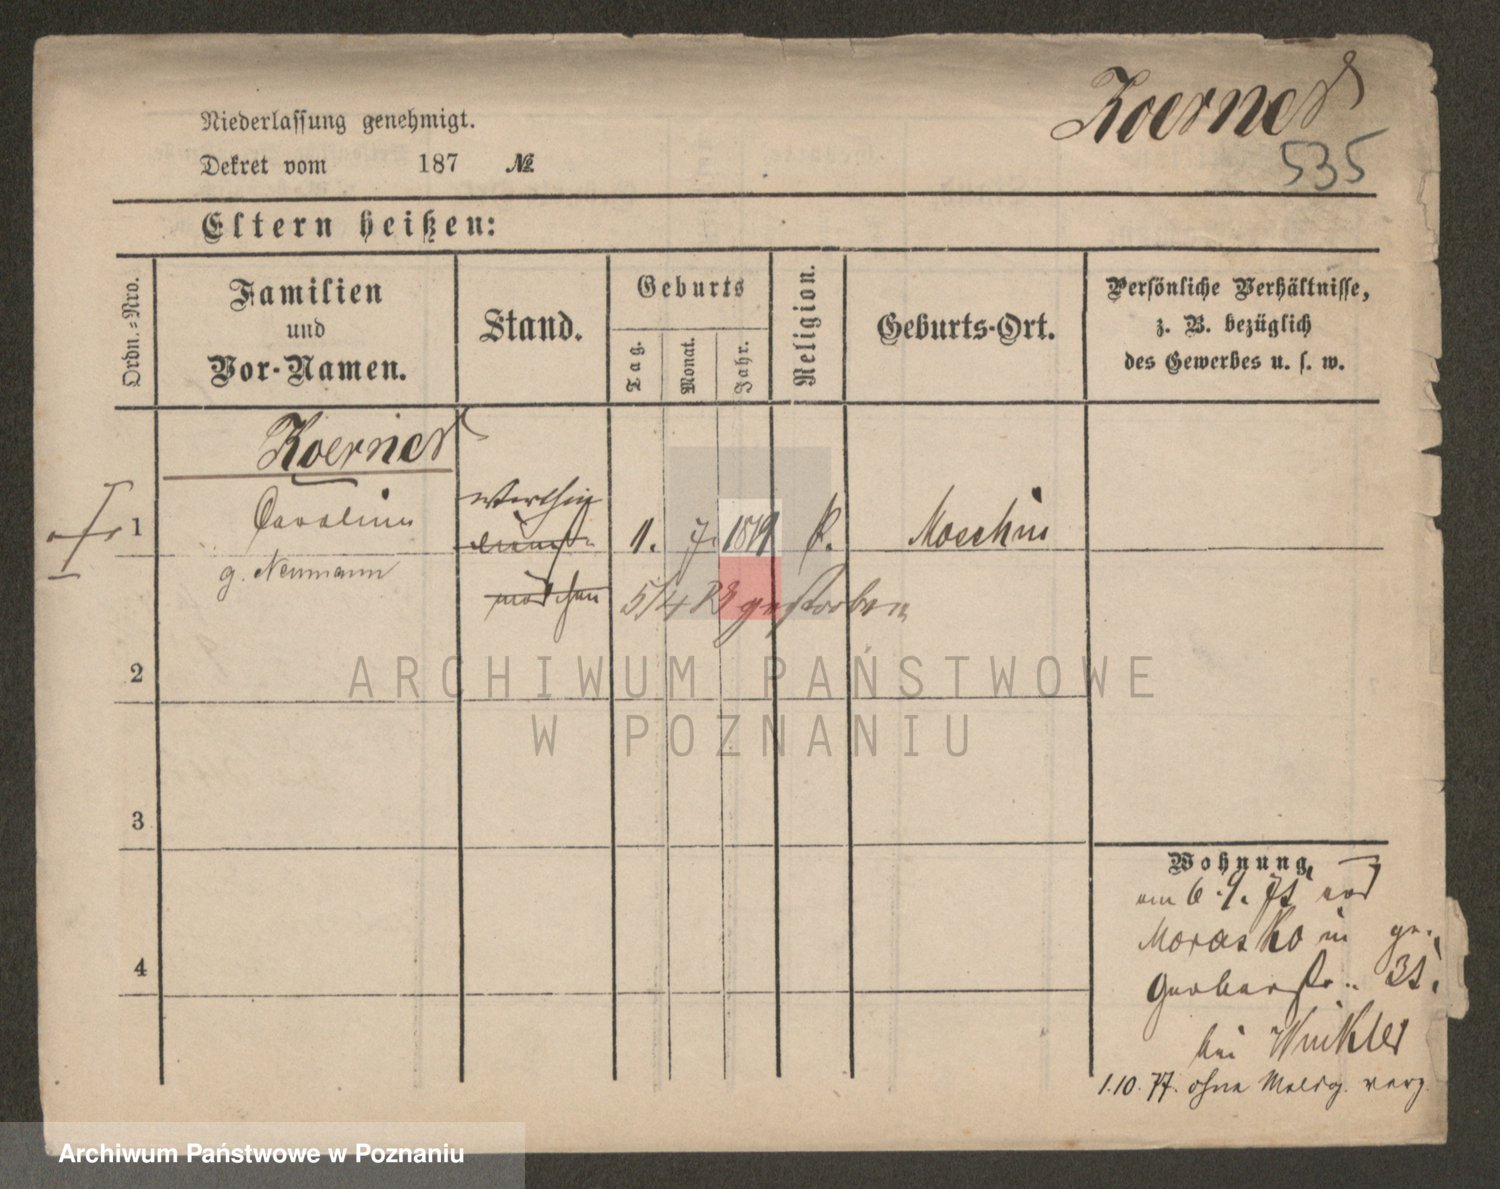 Koerner
535
Niederlassung genehmigt.
Dekret vom 187 №
Eltern heißen:
Ordn.-Nro.
Familien
und
Vor-Namen.
Stand.
Geburts
Tag.
Monat.
Jahr.
Religion.
Geburts-Ort.
Persönliche Verhältnisse,
z. B. bezüglich
des Gewerbes u. s. w.
Koerner
1 Caroline 1. 7. 1819 k. Moschin
g. Neumann
mädchen
5/4 gestorben
2
3
4
Wohnung,
am 6.9. aus
Morasko in
Gerberstr..
bei Winkler
1.10.77. ohne Meldg. verz.
ARCHIWUM PAŃSTWOWE
W POZNANIU
Archiwum Państwowe w Poznaniu